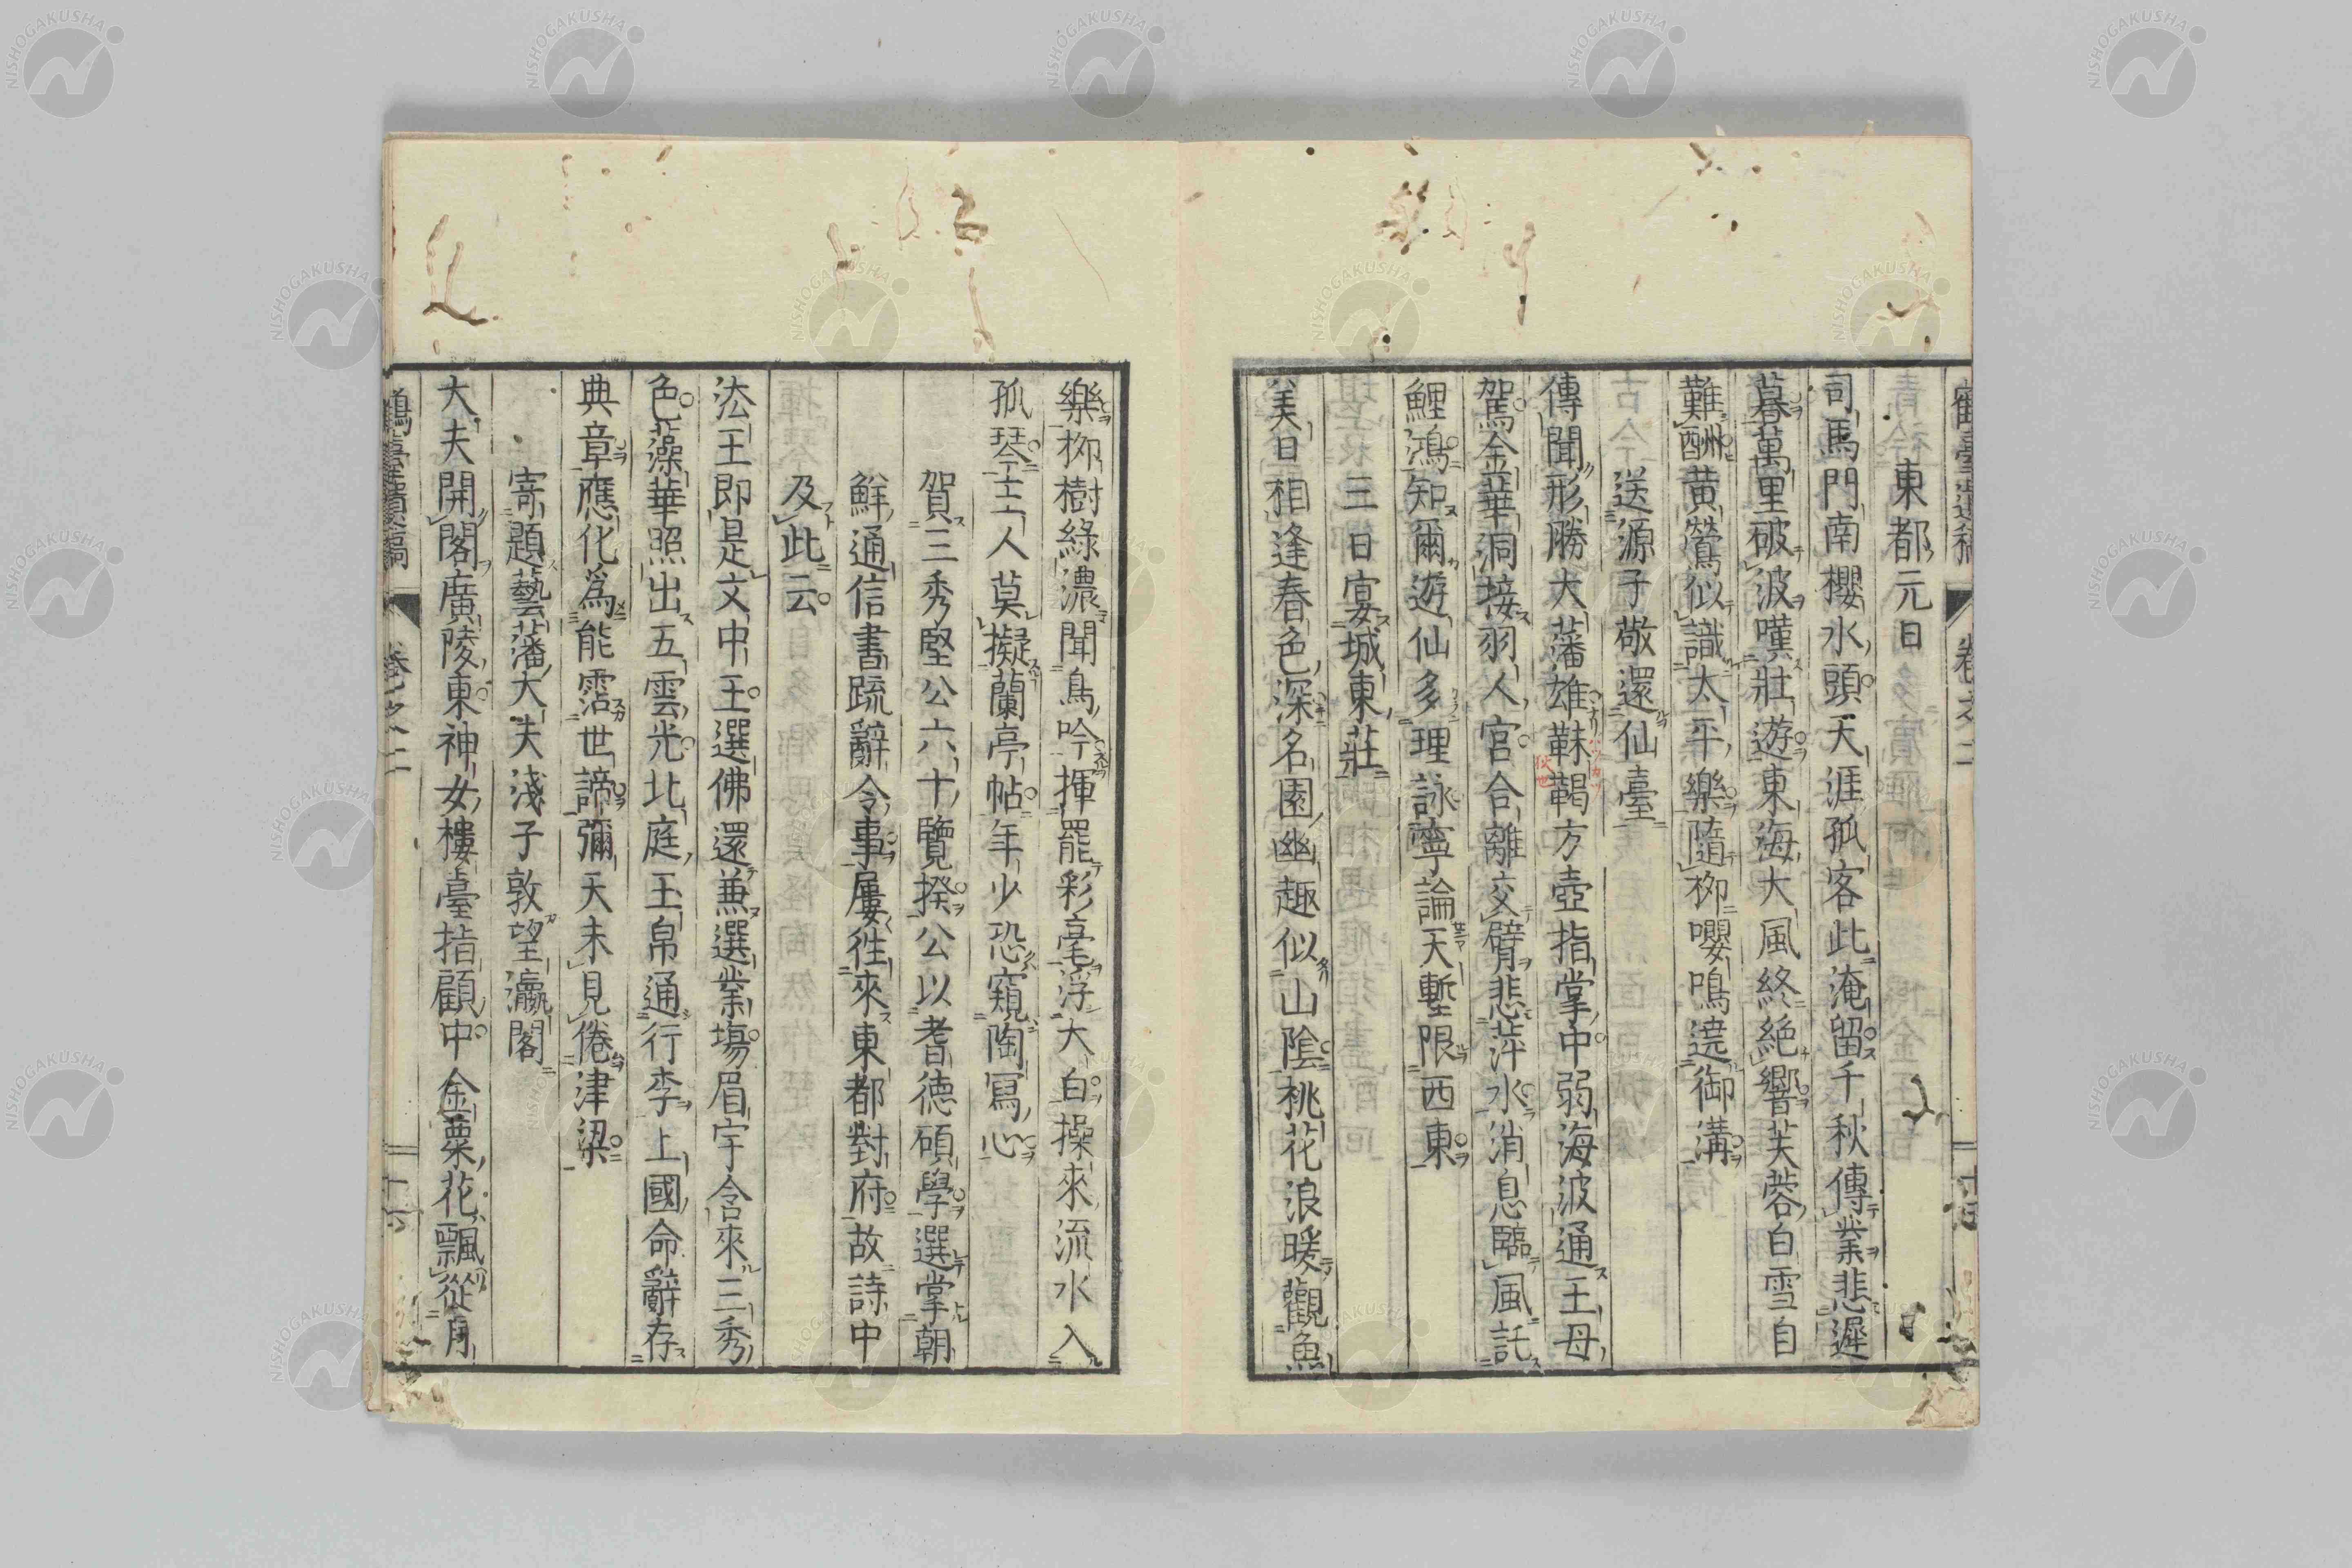 東都元日
司馬門南櫻水頭天涯孤客此淹留千秋傳業悲遲
暮萬里破波嘆壯遊東海大風終絕響芙蓉白雪自
難酬黃鶯似識太平樂隨柳嚶鳴遶御溝
送源子敬還仙臺
傳聞形勝大藩雄靺鞨方壺指掌中弱海波通王母
駕金華洞接羽人宮合離交臂悲萍水消息臨風託
鯉鴻知爾遊仙多理詠寧論天塹限西東
三日宴城東莊
美日相逢春色深名園幽趣似山陰桃花浪暖觀魚
樂柳樹綠濃聞鳥吟揮罷彩毫浮大白操來流水入
孤琴主人莫擬蘭亭帖年少恐窺陶寫心
賀三秀堅公六十覽揆公以耆德碩學選掌朝
鮮通信書疏辭令事屢往來東都對府故詩中
及此云
法王即是文中王選佛還兼選業場眉宇含來三秀
色藻華照出五雲光北庭玉帛通行李上國命辭存
典章應化爲能霑世諦彌天未見倦津梁
寄題藝藩大夫淺子敦望瀛閣
大夫開閣廣陵東神女樓臺指顧中金粟花飄從月
鶴臺遺稿 卷之二 十六